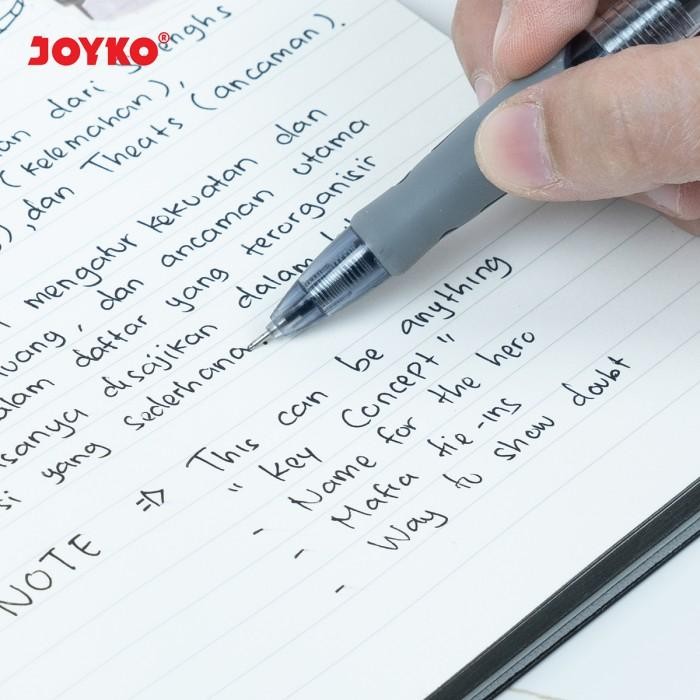 JOYKO®
dari
(kelemahan),
, dan Theats (ancaman).
mengatur kekuatan dan
, dan ancaman utama
daftar yang terorganisir
disajikan dalam
yang sederhana
NOTE => This can be anything
" Key Concept "
- Name for the hero
- Mafia tie-ins
- Way to show doubt